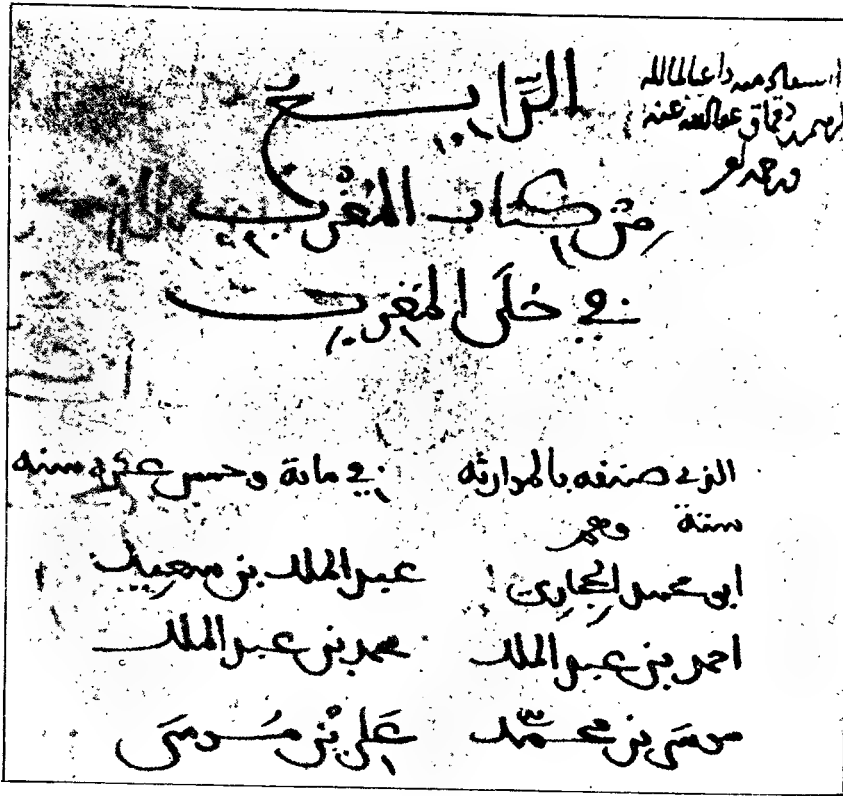 استفاد منه داعيا لمالكه
دقماق عفا الله عنه
الرَّابِعُ
مِن كتاب المُغْرِب
في حُلَى المَغرِب
الذي صنفه بالموارثة في مائة وخمس عشرة سنة
ستة وهم
ابو محمد الحجاري عبد الملك بن سعيد
احمد بن عبد الملك محمد بن عبد الملك
موسى بن محمّد عَلي بْن مُوسَى